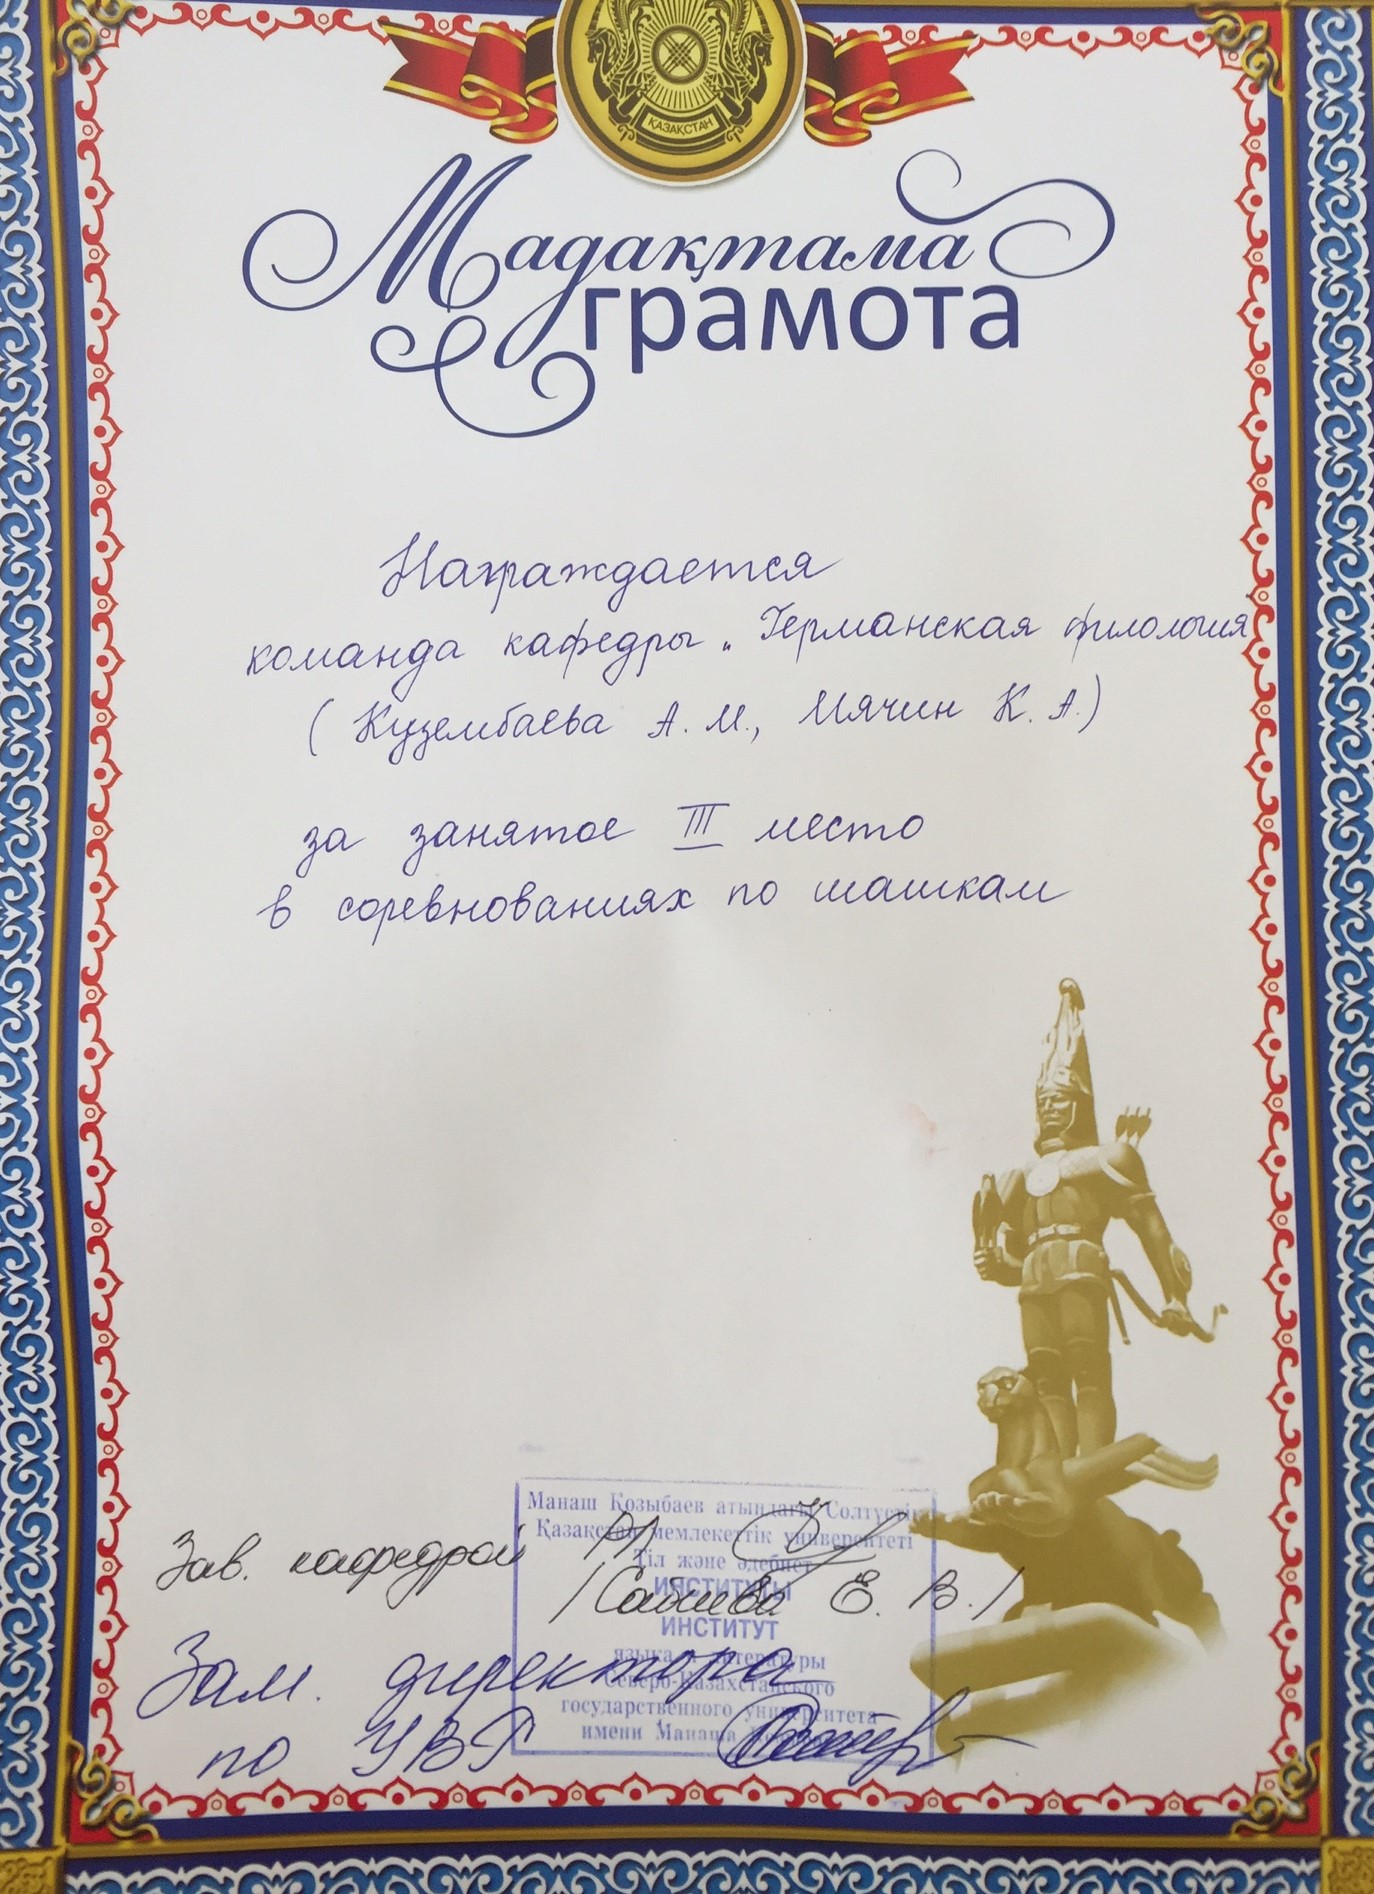 ҚАЗАҚСТАН
Мадақтама
грамота
Награждается
команда кафедры „Германская филология"
(Кузембаева А. М., Мячин К. А.)
за занятое III место
в соревнованиях по шашкам
Манаш Қозыбаев атындағы Солтүстік
Қазақстан мемлекеттік университеті
Тіл және әдебиет
ИНСТИТУТЫ
ИНСТИТУТ
языка и литературы
Северо-Казахстанского
государственного университета
имени Манаша
Зав. кафедрой
/Сабиева Е. В./
Зам. директора
по УВР